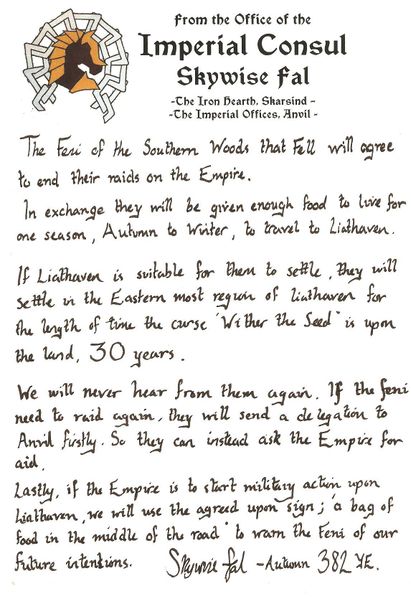 From the Office of the
Imperial Consul
Skywise Fal
-The Iron Hearth, Skarsind -
-The Imperial Offices, Anvil -
The Feni of the Southern Woods that Fell will agree
to end their raids on the Empire.
In exchange they will be given enough food to live for
one season, Autumn to Winter, to travel to Liathaven.
If Liathaven is suitable for them to settle, they will
settle in the Eastern most region of Liathaven for
the length of time the curse 'Wither the Seed' is upon
the land, 30 years.
We will never hear from them again. If the feni
need to raid again, they will send a delegation to
Anvil firstly. So they can instead ask the Empire for
aid.
Lastly, if the Empire is to start military action upon
Liathaven, we will use the agreed upon sign; 'a bag of
food in the middle of the road' to warn the Feni of our
future intentions. Skywise fal - Autumn 382 YE.